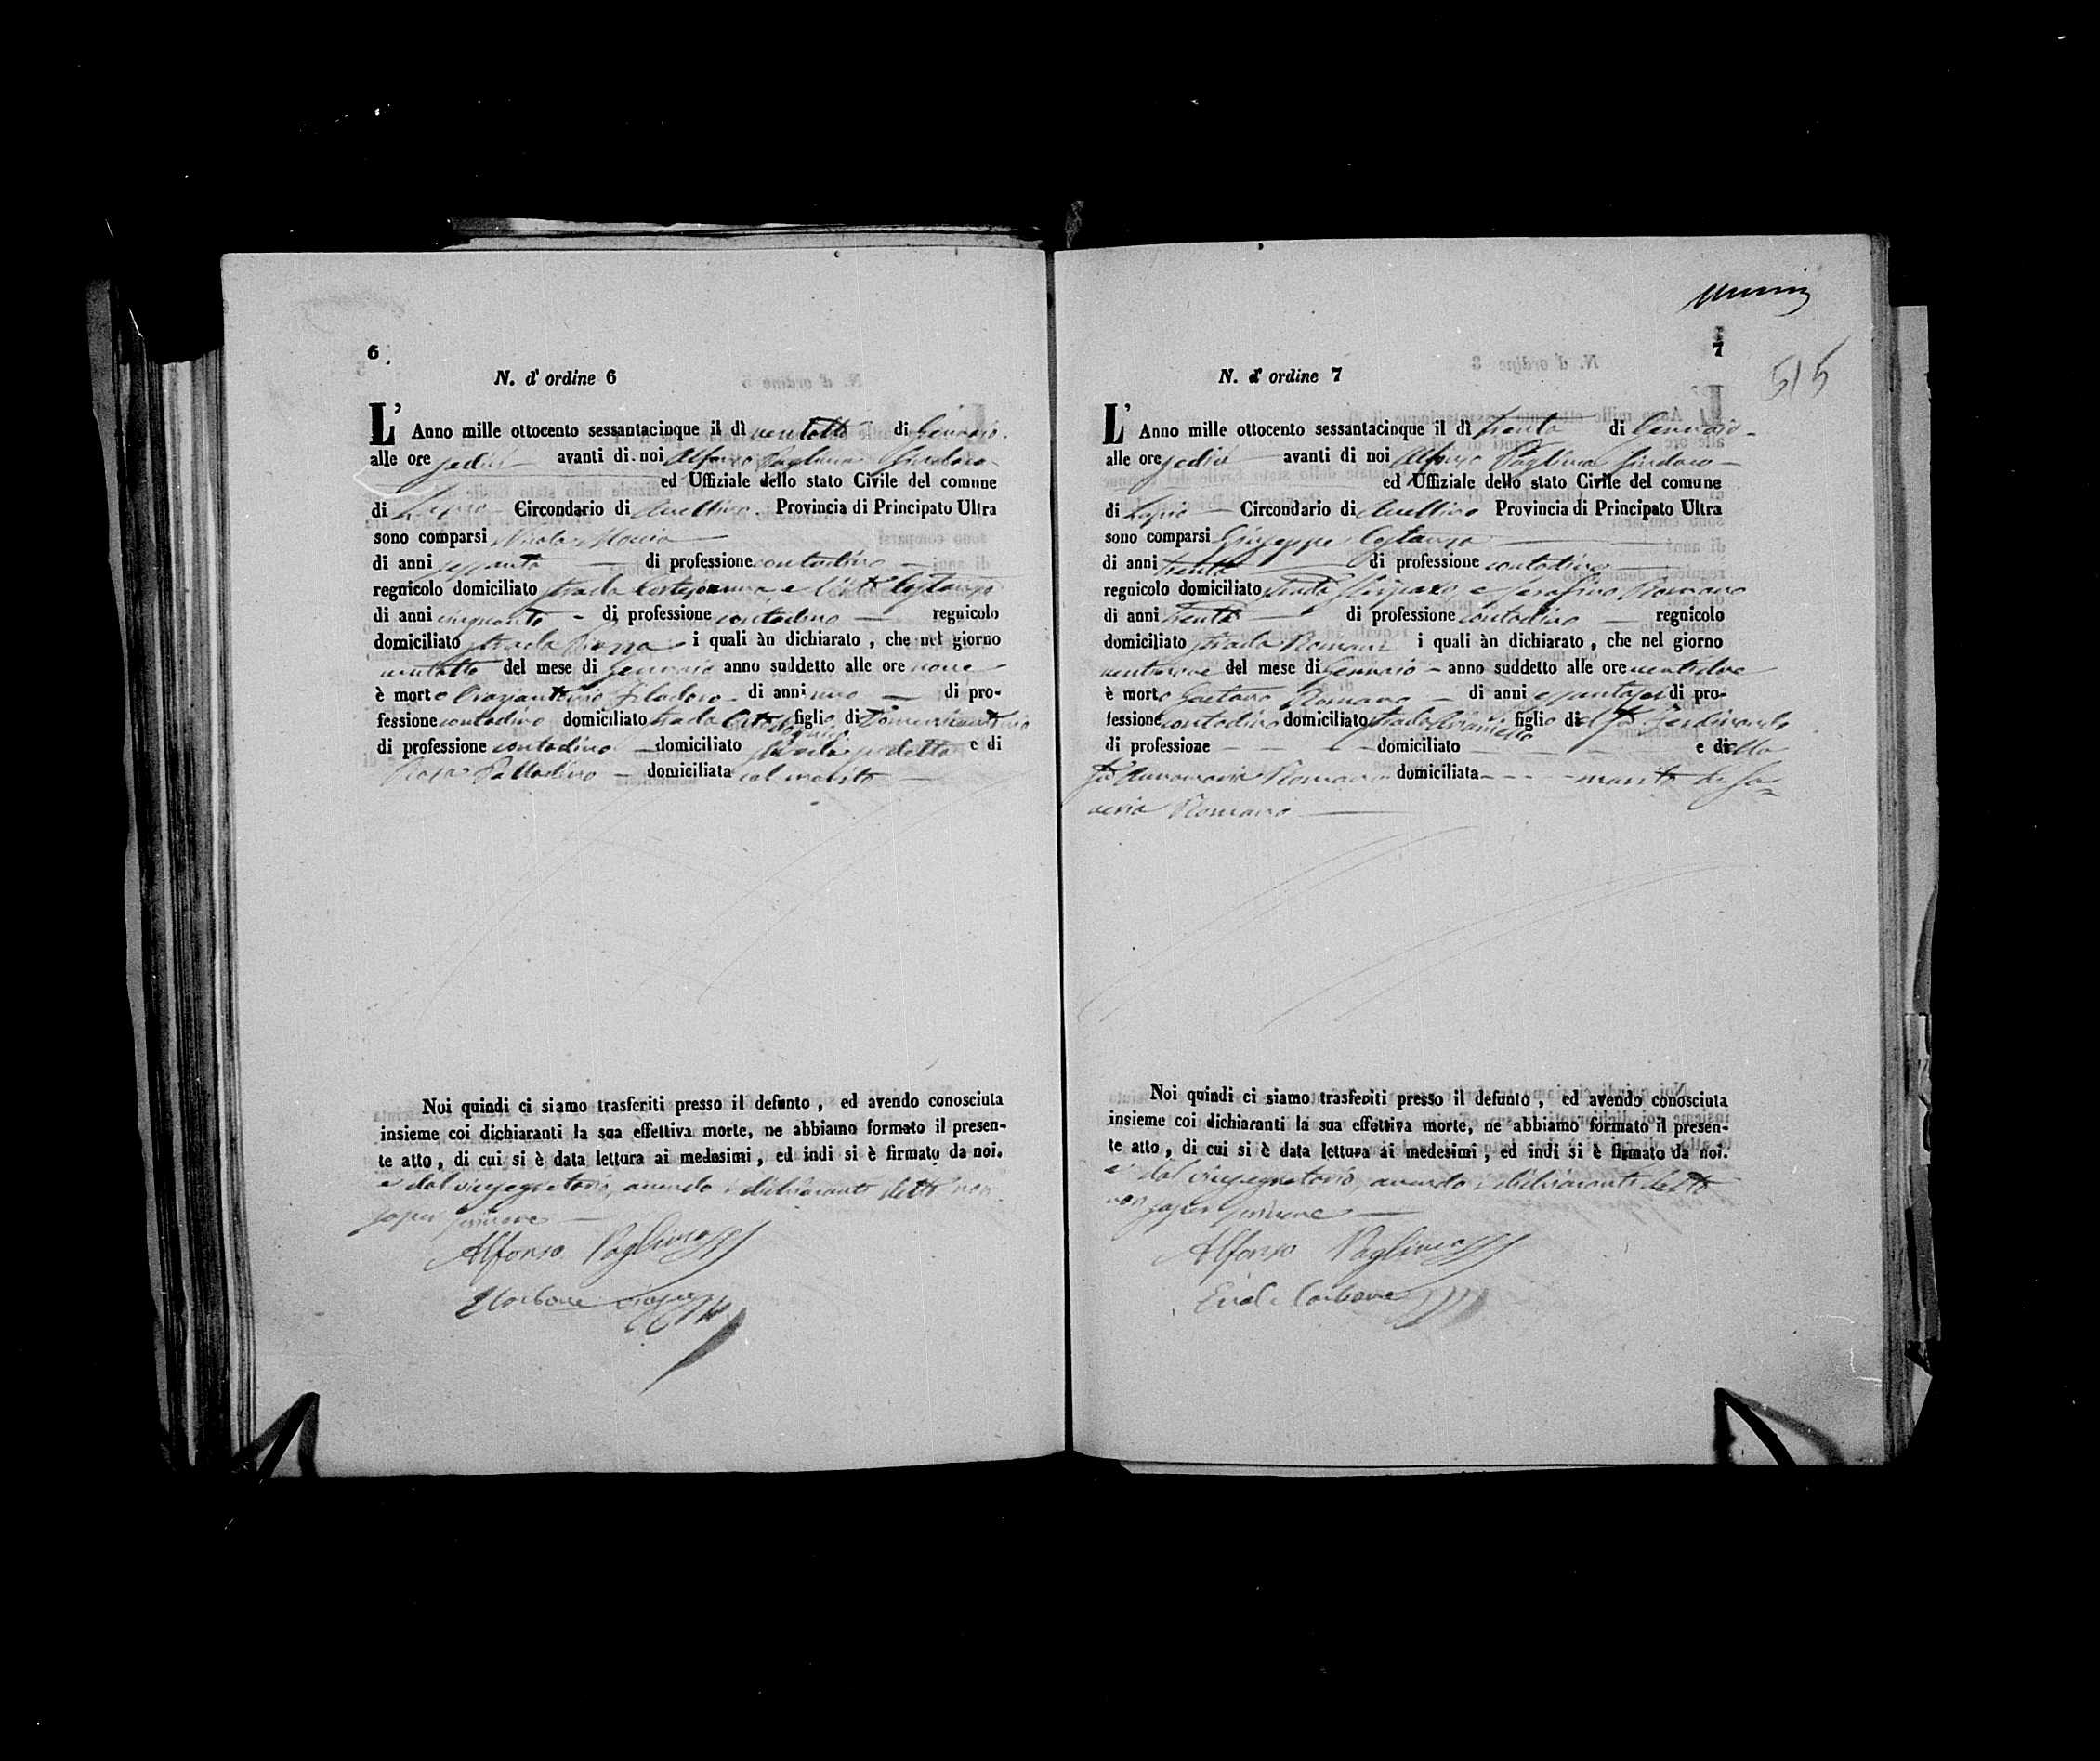 6
N. d' ordine 6
L' Anno mille ottocento sessantacinque il dì ventotto di Gennaio
alle ore sedici avanti di noi Alfonso Pagliuca Sindaco
ed Uffiziale dello stato Civile del comune
di Lapio Circondario di Avellino Provincia di Principato Ultra
sono comparsi Nicola
di anni sessanta di professione contadino
regnicolo domiciliato strada e Vito Costanzo
di anni cinquanta di professione contadino regnicolo
domiciliato strada Piazza i quali àn dichiarato, che nel giorno
ventotto del mese di Gennaio anno suddetto alle ore nove
è morto di anni uno di pro-
fessione contadino domiciliato strada figlio di
di professione contadino domiciliato strada sudetta e di
Rosa Palladino domiciliata col marito
Noi quindi ci siamo trasferiti presso il defunto, ed avendo conosciuta
insieme coi dichiaranti la sua effettiva morte, ne abbiamo formato il presen-
te atto, di cui si è data lettura ai medesimi, ed indi si è firmato da noi.
e dal vicesegretario, avendo i dichiaranti detto non
saper scrivere
Alfonso Pagliuca
Carbone
7
515
N. d' ordine 7
L' Anno mille ottocento sessantacinque il dì trenta di Gennaio
alle ore sedici avanti di noi Alfonso Pagliuca Sindaco
ed Uffiziale dello stato Civile del comune
di Lapio Circondario di Avellino Provincia di Principato Ultra
sono comparsi Giuseppe Costanzo
di anni trenta di professione contadino
regnicolo domiciliato strada e Serafino Romano
di anni trenta di professione contadino regnicolo
domiciliato strada Romani i quali àn dichiarato, che nel giorno
ventinove del mese di Gennaio anno suddetto alle ore ventidue
è morto Gaetano Romano di anni di pro-
fessione contadino domiciliato strada figlio di del fu Ferdinando
di professione domiciliato e della
fu Annamaria Romano domiciliata marito di Sa=
veria Romano
Noi quindi ci siamo trasferiti presso il defunto, ed avendo conosciuta
insieme coi dichiaranti la sua effettiva morte, ne abbiamo formato il presen-
te atto, di cui si è data lettura ai medesimi, ed indi si è firmato da noi.
e dal vicesegretario, avendo i dichiaranti detto
non saper scrivere
Alfonso Pagliuca
Carbone